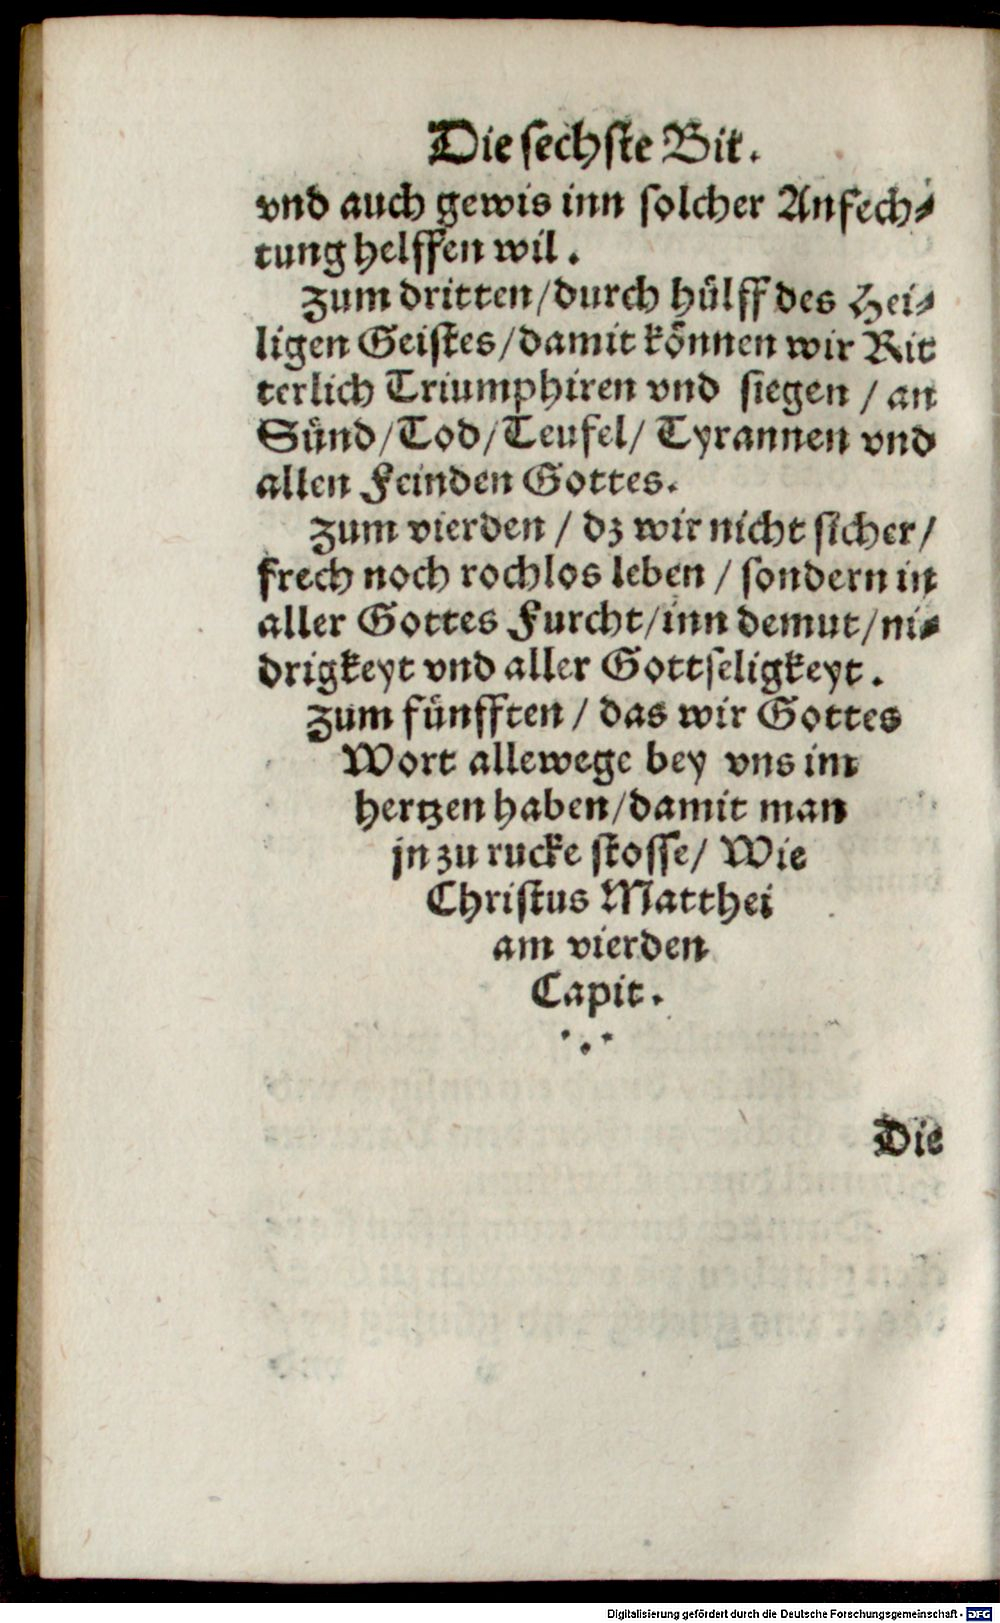 Die sechste Bit.
vnd auch gewis inn solcher Anfech⸗
tung helffen wil.
Zum dritten/durch hülff des Hei⸗
ligen Geistes/damit können wir Rit
terlich Triumphiren vnd siegen / an
Sünd/Tod/Teufel/ Tyrannen vnd
allen Feinden Gottes.
Zum vierden / dz wir nicht sicher/
frech noch rochlos leben / sondern in
aller Gottes Furcht/inn demut/ni⸗
drigkeyt vnd aller Gottseligkeyt.
Zum fünfften / das wir Gottes
Wort allewege bey vns im
hertzen haben/damit man
jn zu rucke stosse/ Wie
Christus Matthei
am vierden
Capit.
Die
Digitalisierung gefördert durch die Deutsche Forschungsgemeinschaft - DFG